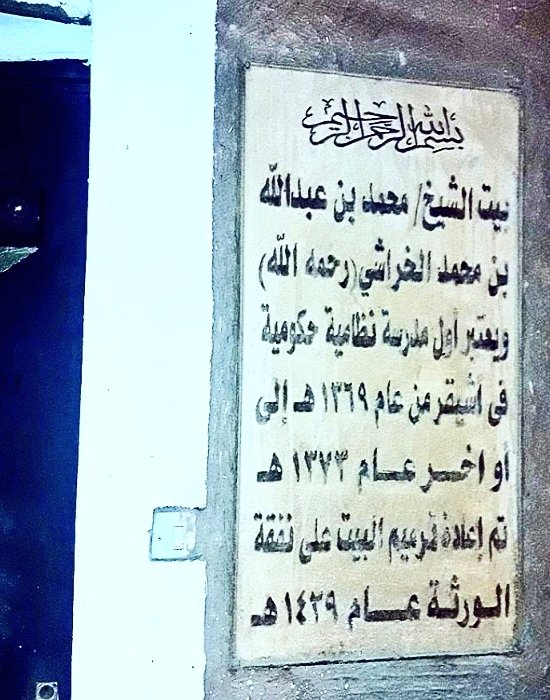 بسم الله الرحمن الرحيم
بيت الشيخ/ محمد بن عبدالله
بن محمد الخراشي(رحمه الله)
ويعتبر أول مدرسة نظامية حكومية
في أشيقر من عام ١٣٦٩ هـ إلى
أواخر عام ١٣٧٣ هـ
تم إعادة ترميم البيت على نفقة
الورثة عام ١٤٢٩ هـ